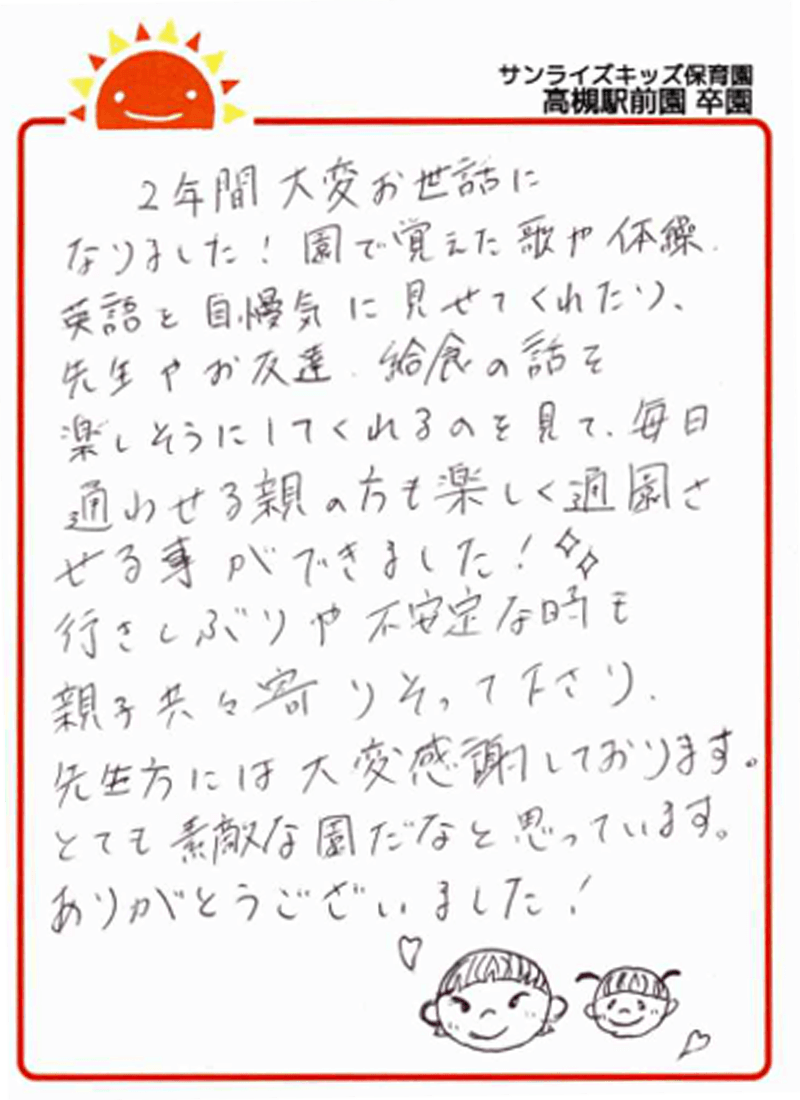 サンライズキッズ保育園
高槻駅前園 卒園
2年間 大変お世話に
なりました！園で覚えた歌や体操、
英語を自慢気に見せてくれたり、
先生やお友達、給食の話を
楽しそうにしてくれるのを見て、毎日
通わせる親の方も楽しく通園さ
せる事ができました！
行きしぶりや不安定な時も
親子共々寄りそって下さり、
先生方には大変感謝しております。
とても素敵な園だなと思っています。
ありがとうございました！